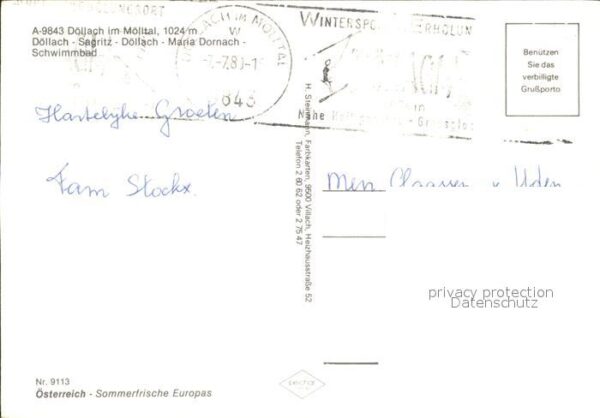 A-9843 Döllach im Mölltal, 1024 m
Döllach - Sagritz - Döllach - Maria Dornach -
Schwimmbad
WINTERSPO ERHOLUN
Nähe
Benützen
Sie das
verbilligte
Grußporto
Hartelyke Groeten
Fam Stockx.
H. Steilmann, Farbkarten, 9500 Villach, Heizhausstraße 52
Telefon 2 80 62 oder 2 75 47
privacy protection
Datenschutz
Nr. 9113
Österreich - Sommerfrische Europas